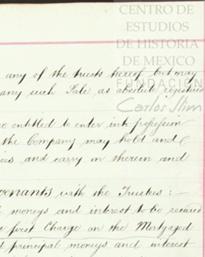 CENTRO DE
ESTUDIOS
DE HISTORIA
DE MEXICO
FUNDACIÓN
Carlos Slim
any of the trusts hereof but may
any such Sale as absolute
entitled to enter into possession
the Company may hold and
and carry in therein and
covenants with the Trustees :—
moneys and interest to be secured
first Charge on the Mortgaged
principal moneys and interest